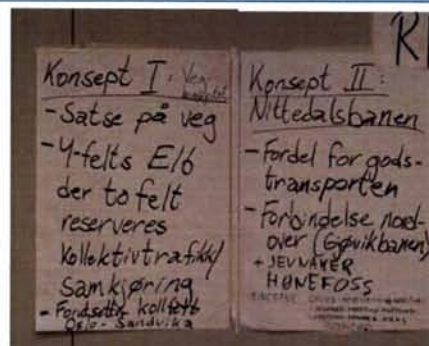 Konsept I: Veg
- Satse på veg
- 4-felts E16
der to felt
reserveres
kollektivtrafikk/
samkjøring
- Fortsette
Oslo - Sandvika
Konsept II:
Nittedalsbanen
- Fordel for gods-
transporten
- Forbindelse nord-
over (Gjøvikbanen)
+ JEVNAKER
HØNEFOSS